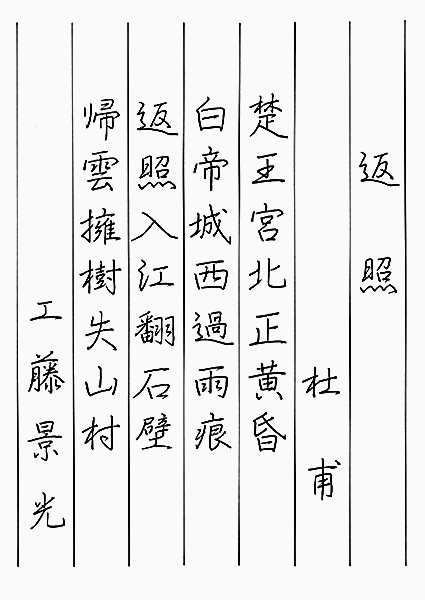 返照
杜甫
楚王宮北正黄昏
白帝城西過雨痕
返照入江翻石壁
帰雲擁樹失山村
工藤景光